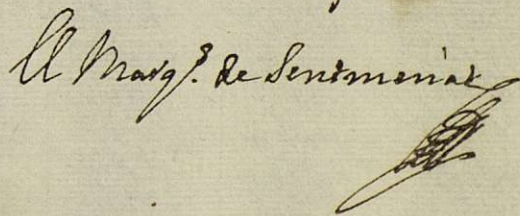 El Marq.s de Sentmenat